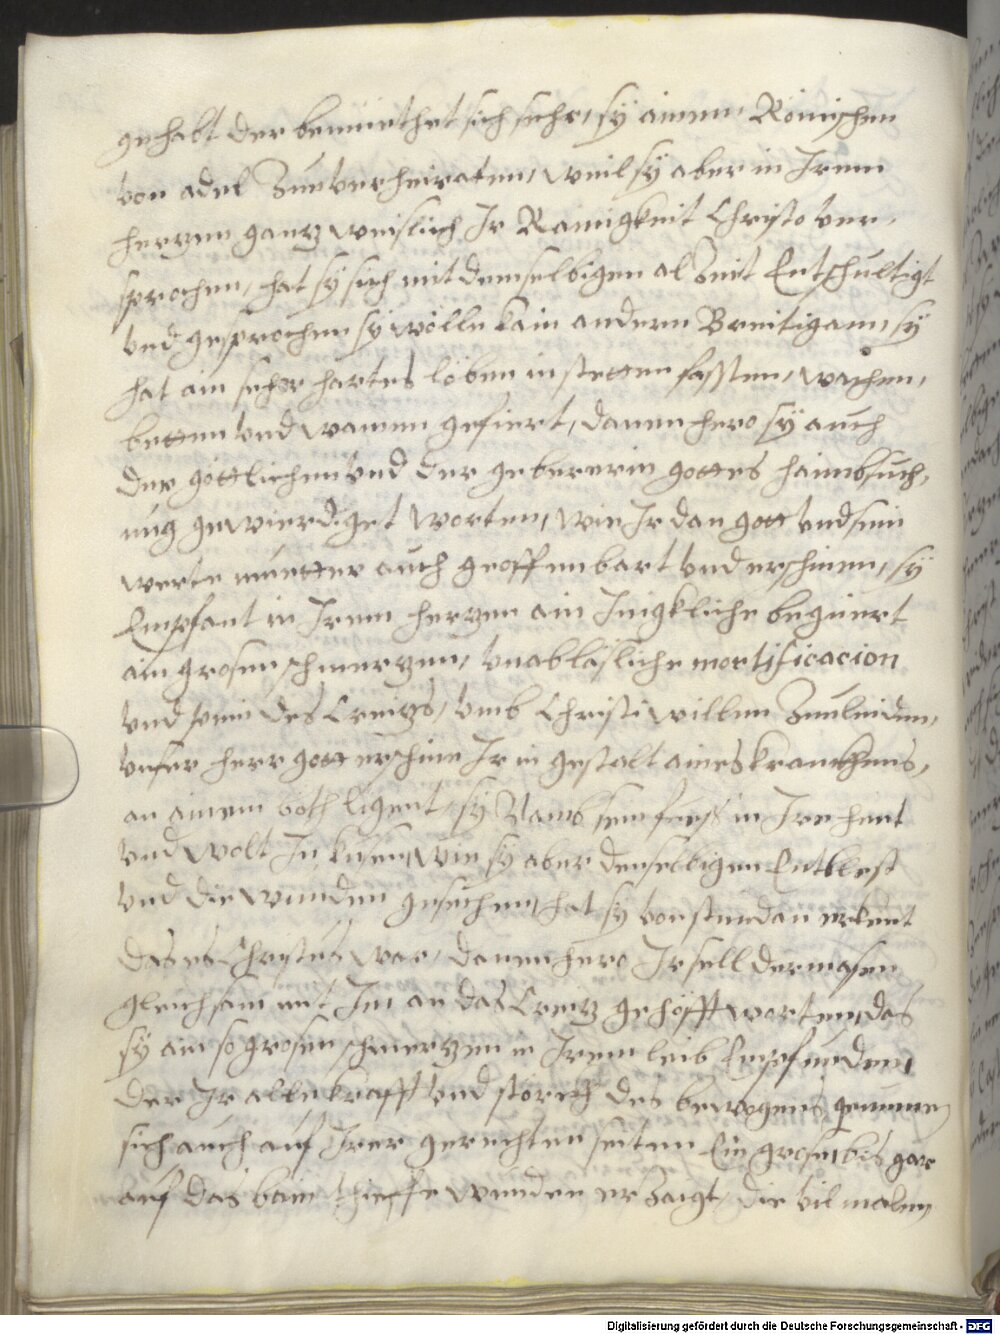 gehabt der bemüethet sich sehr, sy ainem Römischen
von adel Zuuerheiraten, weil sy aber in Irem
herzen ganz weislich Ir Rainigkeit Christo ver,
sprochen, hat sy sich mit demselbigen al Zeit Entschultigt
und gesprochen sy wölle kain andern Breitigam, sy
hat ain sehr hartes löben in stetten fassten, wachen,
betten und wainen gefiert, dannenhero sy auch
der göttlichen und der gebererin gottes haimbsuch,
ung gewierdiget worten, wie Ir dan gott und sein
werte muetter auch geoffenbart und erschinen, sy
Empfant in Irem herzen ain Inigkliche begiert
ain grosen schmerzen, unabläsliche mortificacion
und pein des Creizs, umb Christi willen Zuuleiden,
unser herr gott erschine Ir in gestalt aines kranckhens,
an ainem böth ligent, sy Namb sein fuess in Ire hent
und wolt In küsen, wie sy aber denselbigen Entblest
und die wunden gesechen, hat sy von stundan erkent
das es Christus war, dannenhero Ir sell dermasen
gleichsam mit Im an das Creiz gehöfft worten, das
sy ain so grosen schmerzen in Irem leib Empfunden,
der Ir alle krafft und störckh des bewögens genumen,
sich auch auf Irer gerechten seiten Ein grose, bis gar
auf das bain thieffe wunden erzaigt, die vil malen